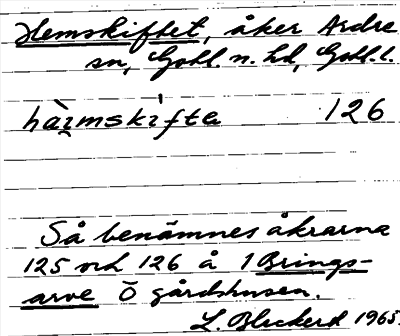 Hemskiftet, åker Ardre
sn, Gotl. n. hd, Gotl. l.
hài̯mski̍fta 126
Så benämnes åkrarna
125 och 126 å 1 Brings-
arve Ö gårdshusen.
L. Blickerd 1965